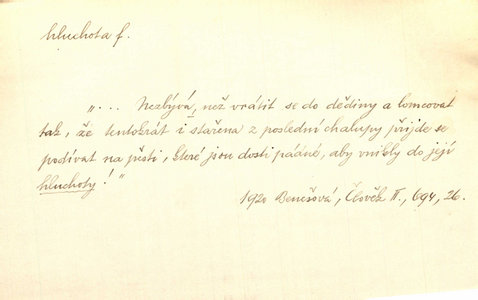 hluchota f.
„... Nezbývá, než vrátit se do dědiny a lomcovat
tak, že tentokrát i stařena z poslední chalupy přijde se
podívat na pěsti, které jsou dosti pádné, aby vnikly do její
hluchoty!"
1920 Benešová, Člověk II., 694, 26.